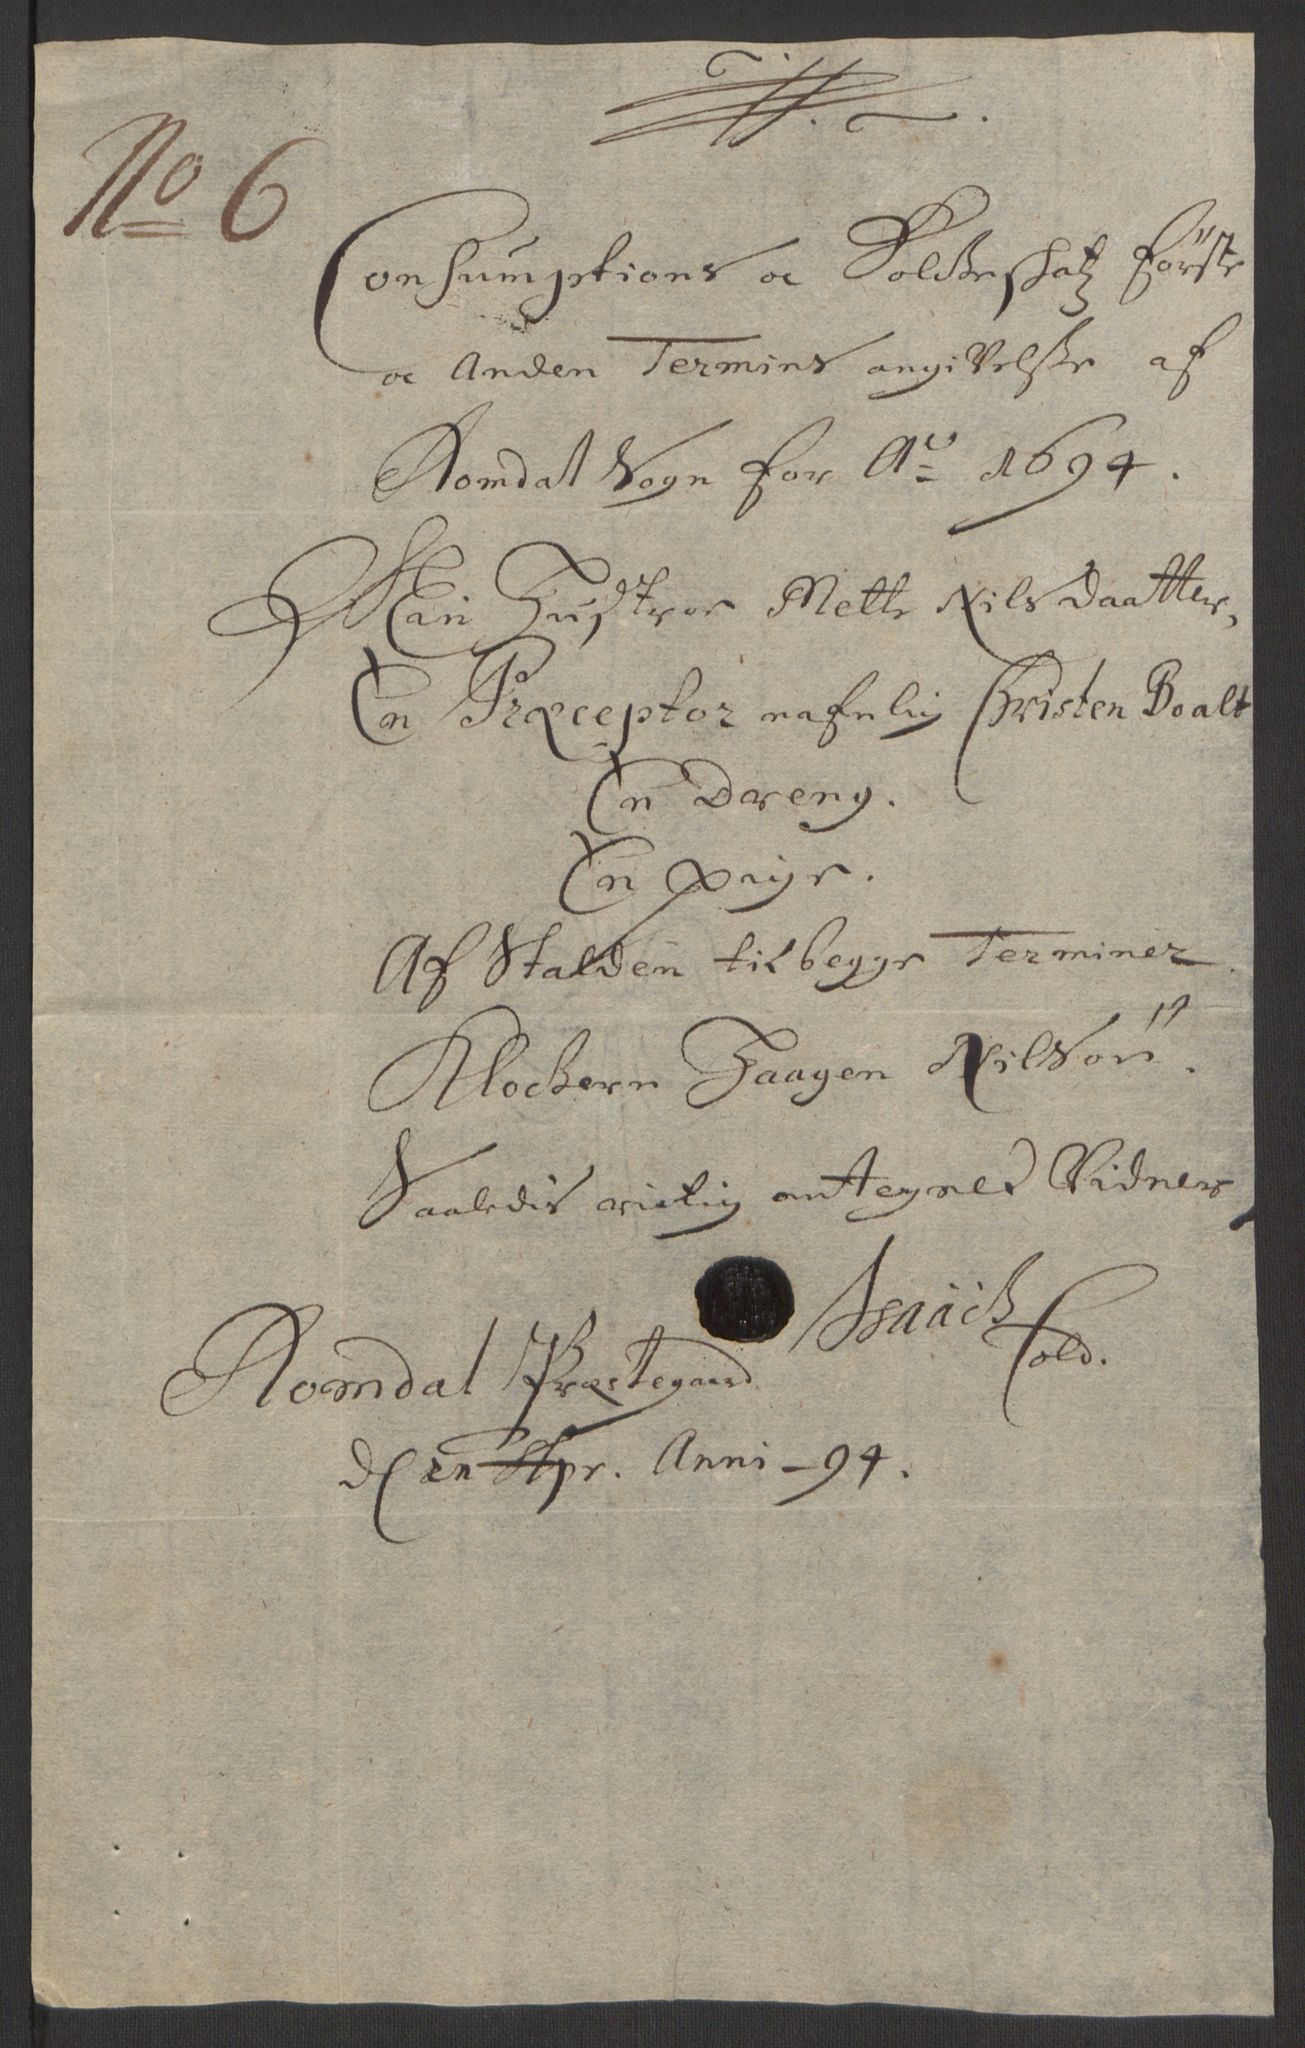 No 6
Consumptions oc Folckeskatz förste
oc Anden Termins angivelse af
Romdal Sogn for Ao 1694.
Min Hustroe Mette Nilsdaatter,
En Præceptor nafnlig Christen Boalt
En Dreng.
En pige.
Af Stalden til begge Terminer
Klockern Haagen Nilsön.
Saaledis rictig antegned Vidner
Isaäck Cold.
Romdal Præstegaard
d. Apr. Anni -94.